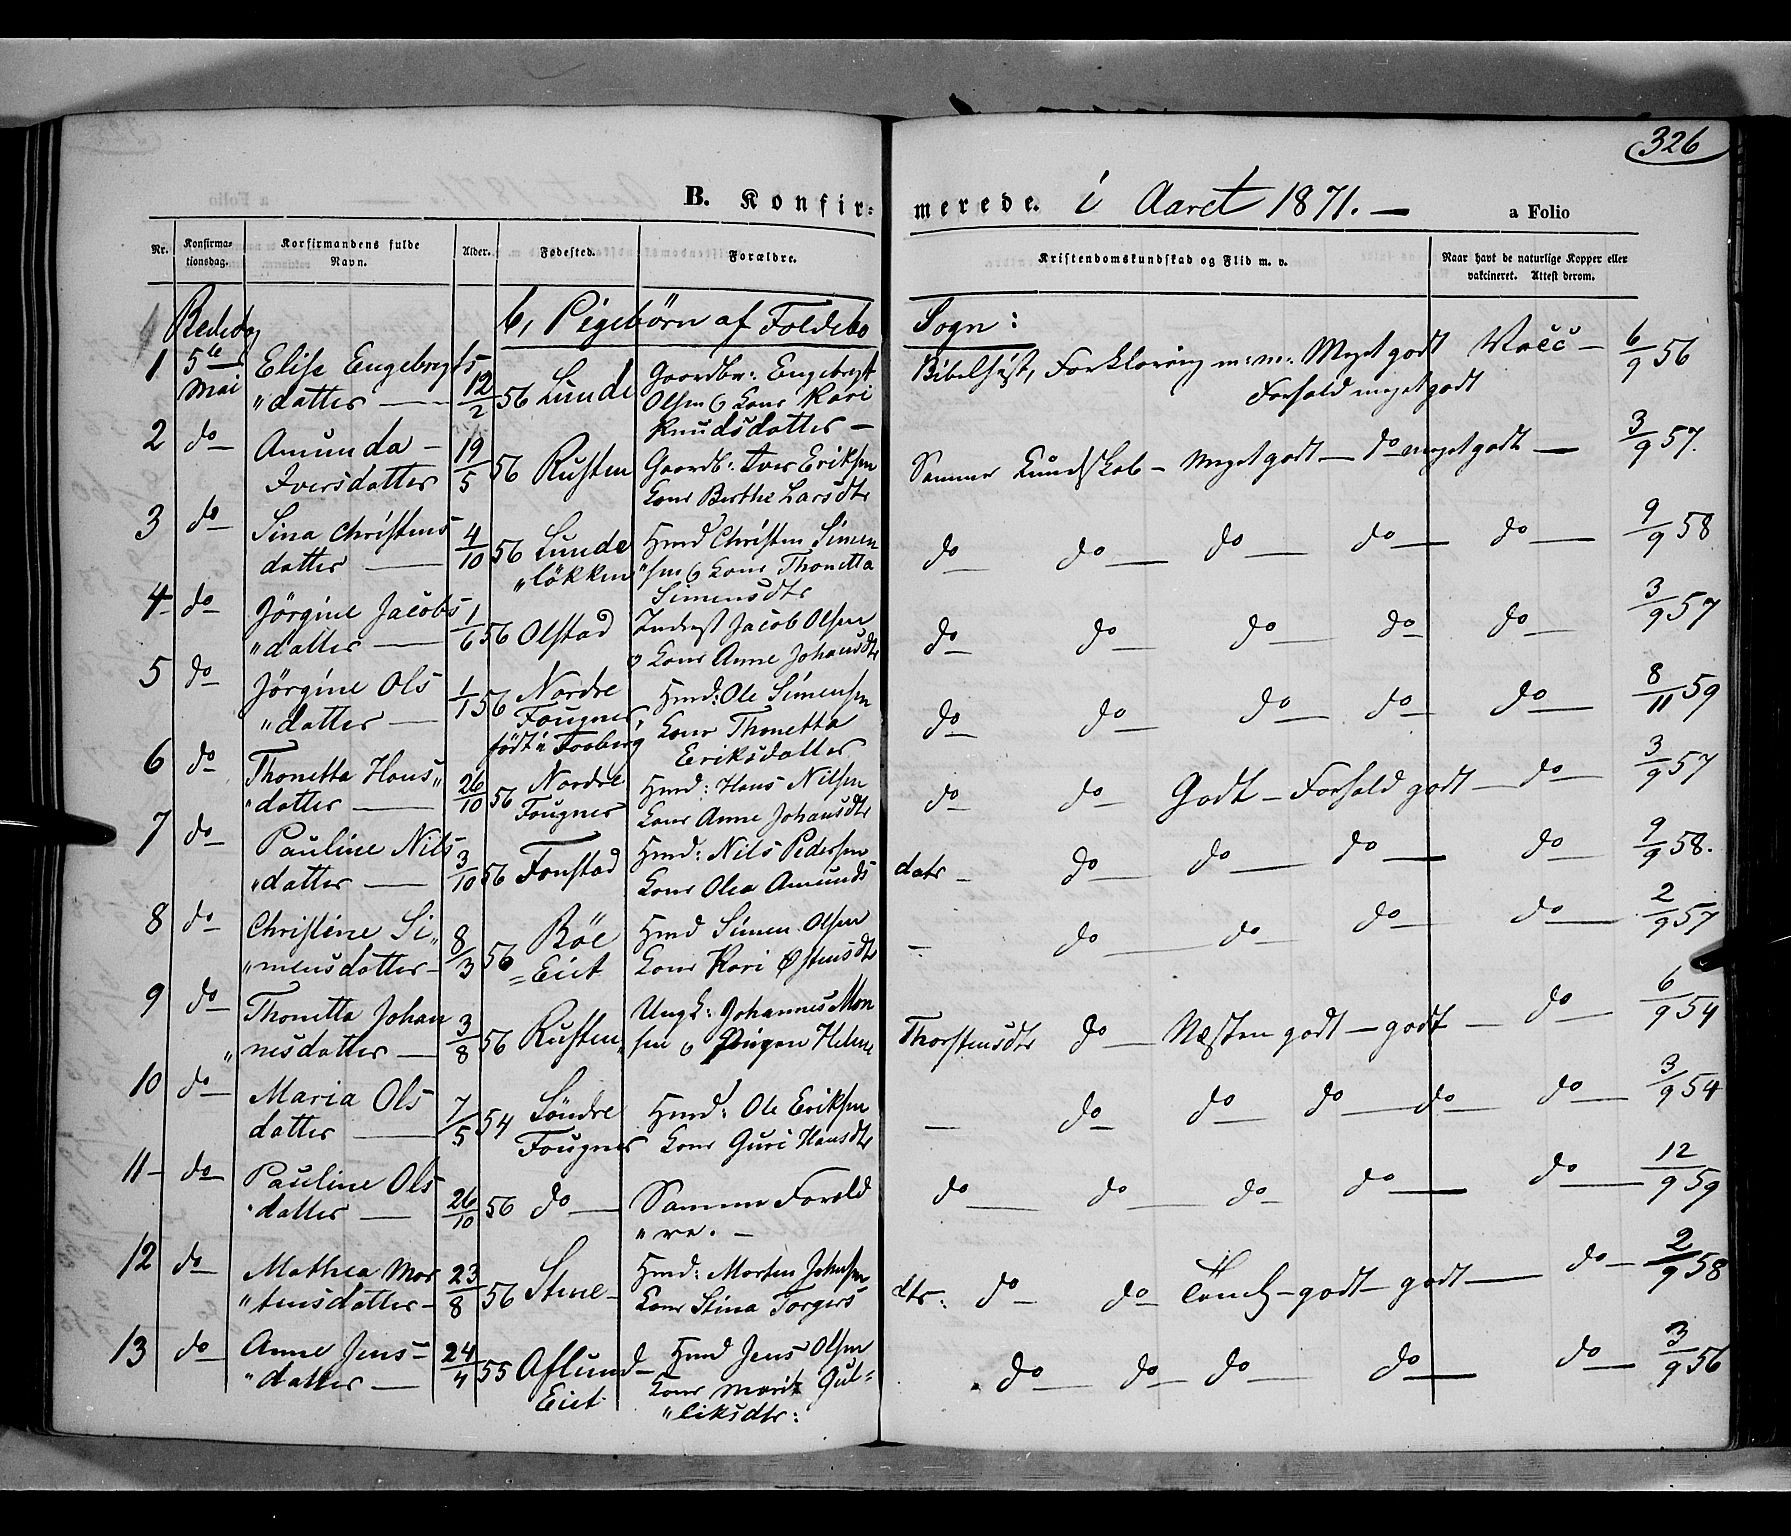 326
B. Konfir- merede. i Aaret 1871. — a Folio
Nr. Konfirma- tionsdag. Korfirmandens fulde Navn. Alder. Fødested. Forældre. Kristendomskundskab og Flid m. v. Naar havt de naturlige Kopper eller vakcineret. Attest derom.
Bededag b, Pigebörn af Foldebo Sogn:
1 5te Mai Elise Engebregts
"datter — 12/2 56 Lunde Gaardbr: Engebregt
Olsen o Kone Kari
Knudsdatter — Bibelhist, Forklaring m: m: Meget godt Vacc — 6/9 56
Forhold meget godt
2 do Amunda —
Iversdatter 19/5 56 Rusten Gaardb: Iver Eriksen
Kone Berthe Larsdtr Samme Kundskab — Meget godt — do meget godt — 3/9 57.
3 do Sina Christens
datter — 4/10 56 Lunde
"lökken Hmd Christen Simen
"sen o Kone Thonetta
Simensdtr do do do do do 9/9 58
4 do Jörgine Jacobs
"datter — 1/6 56 Olstad Inderst Jacob Olsen
o Kone Anne Johansdtr do do do do do 3/9 57
5 do Jörgine Ols
"datter — 1/1 56 Nordre
Fougner,
födt i Faaberg Hmd: Ole Simensen
Kone Thonetta
Eriksdatter do do do do do 8/11 59
6 do Thonetta Hans"
"datter — 26/10 56 Nordre
Fougner Hmd: Hans Nilsen
Kone Anne Johansdtr do do Godt — Forhold godt — do 3/9 57
7 do Pauline Nils
"datter — 3/10 56 Fonstad Hmd: Nils Pedersen
Kone Olea Amunds datr — do do do do 9/9 58.
8 do Christine Si"
"mensdatter — 8/3 56 Böe
= Eiet Hmd Simen Olsen
Kone Kari Østensdtr — do do do do 2/9 57
9 do Thonetta Johan
"nesdatter — 3/8 56 Rusten Ungk: Johannes Mon
sen o Pigen Helene Thorstensdtr do Næsten godt — godt — do 6/9 54
10 do Maria Ols
datter — 7/5 54 Söndre
Fougner Hmd: Ole Eriksen
Kone Guri Hansdtr — do do do do do 3/9 54
11 do Pauline Ols
"datter — 26/10 56 do — Samme Foræld
"re. — do do do do do 12/9 59
12 do Mathea Mor
"tensdatter — 23/8 56 Stene — Hmd: Morten Johnsen
Kone Stina Torgers dtr: do do — godt — godt — do 2/9 58
13 do Anne Jens —
"datter — 24/4 55 Aflund —
Eiet Hmd Jens Olsen
Kone Marit Gul=
"liksdtr: do do do do do 3/9 56